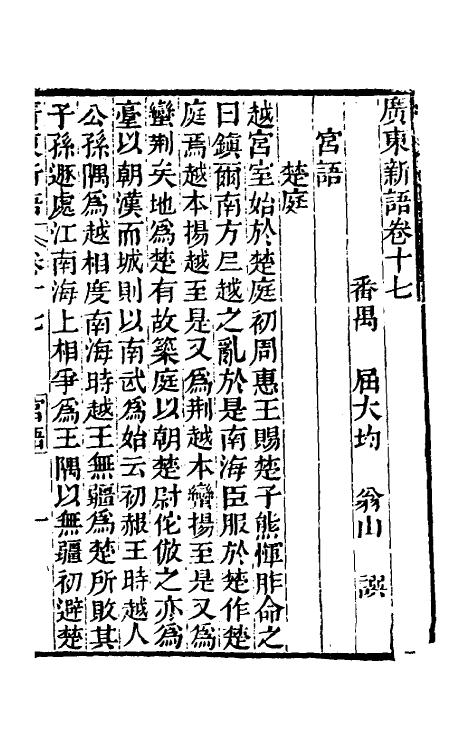 廣東新語卷十七
番禺 屈大均 翁山 譔
宮語
楚庭
越宮室始於楚庭初周惠王賜楚子熊惲胙命之
曰鎮爾南方夷越之亂於是南海臣服於楚作楚
庭焉越本揚越至是又為荆越本蠻揚至是又為
蠻荆矣地為楚有故築庭以朝楚尉佗倣之亦為
臺以朝漢而城則以南武為始云初赧王時越人
公孫隅為越相度南海時越王無疆為楚所敗其
子孫遯處江南海上相爭為王隅以無疆初避楚
廣東新語 卷十七 宮語 一